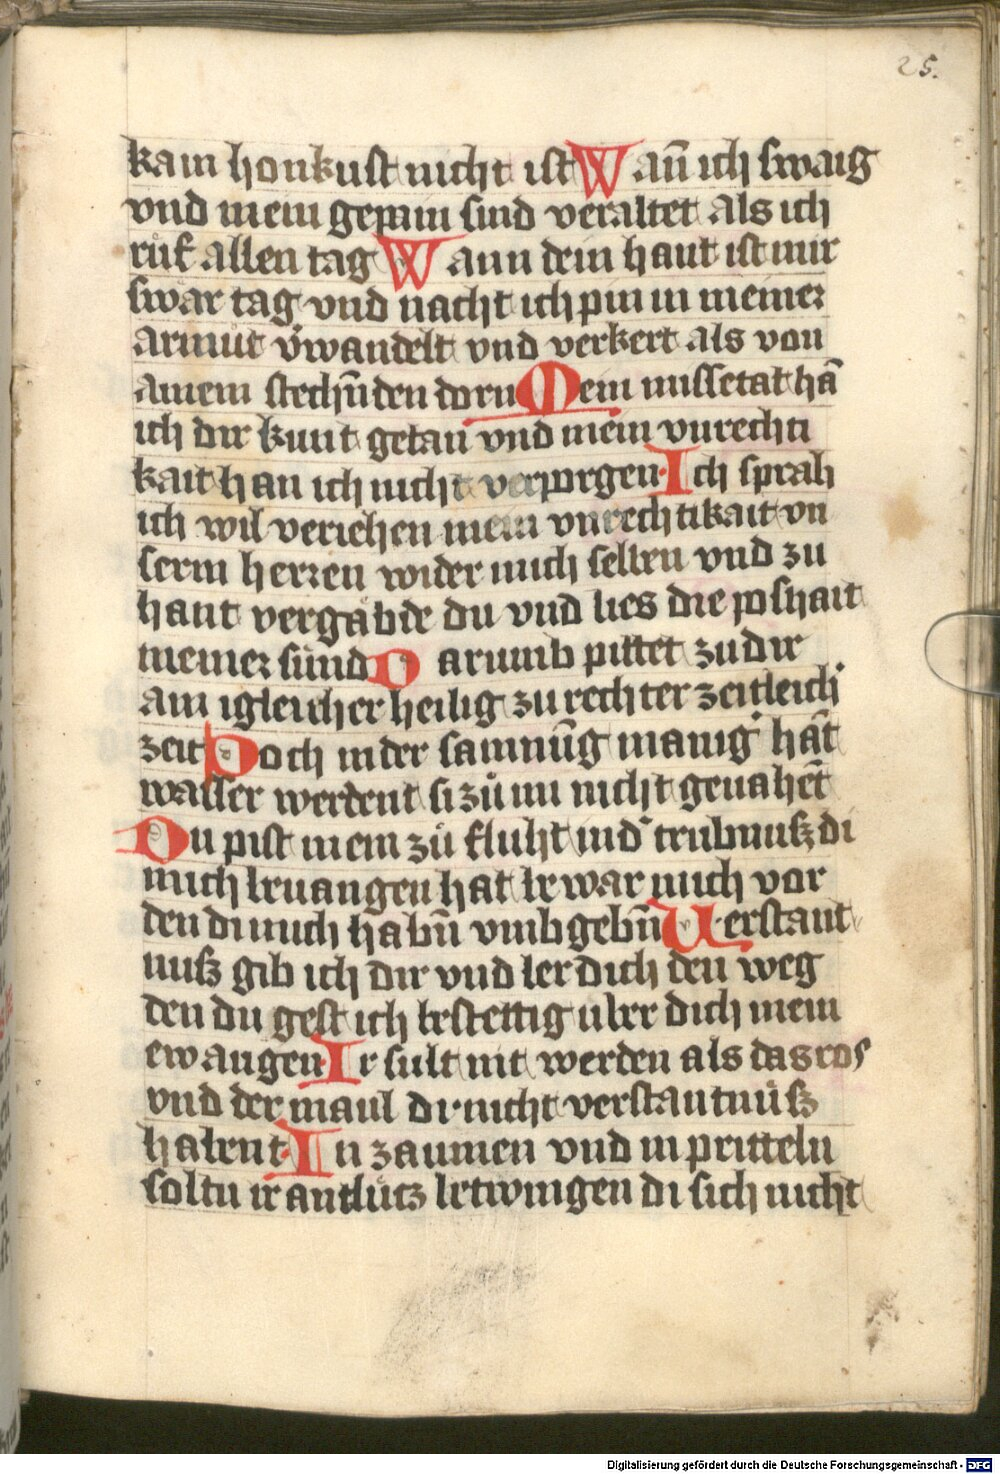 25.
kain honkust nicht ist Wañ ich swaig
vnd mein gepain sind veraltet als ich
rüf allen tag Wann dein hant ist mir
swår tag vnd nacht ich pin in meiner
armůt v̉wandelt vnd verkert als von
ainem stechñden dorn Mein missetat hā
ich dir kunt getan vnd mein vnrechti
kait han ich nicht verporgen Ich sprah
ich wil veriehen mein vnrechtikait vn
serm herren wider mich selben vnd zu
hant vergåbde du vnd lies die poshait
meiner sünd Darumb pittet zu dir
ain igleicher heilig zu rechter zeitleich̉
zeit Doch in der samnūg manig̉ hāt
wasser werdent si zů im nicht genahēt
Du pist mein zů fluht ind̉ trubnuß di
mich bevangen hat bewar mich vor
den di mich habñ vmbgebñ Verstant
nuß gib ich dir vnd ler dich den weg
den du gest ich bestettig uber dich mein
ewangen Ir sult nit werden als das ros
vnd der maul di nicht verstantnůß
habent In zaumen vnd in pritteln
soltu ir antlůcz betwingen di sich nicht
Digitalisierung gefördert durch die Deutsche Forschungsgemeinschaft - DFG